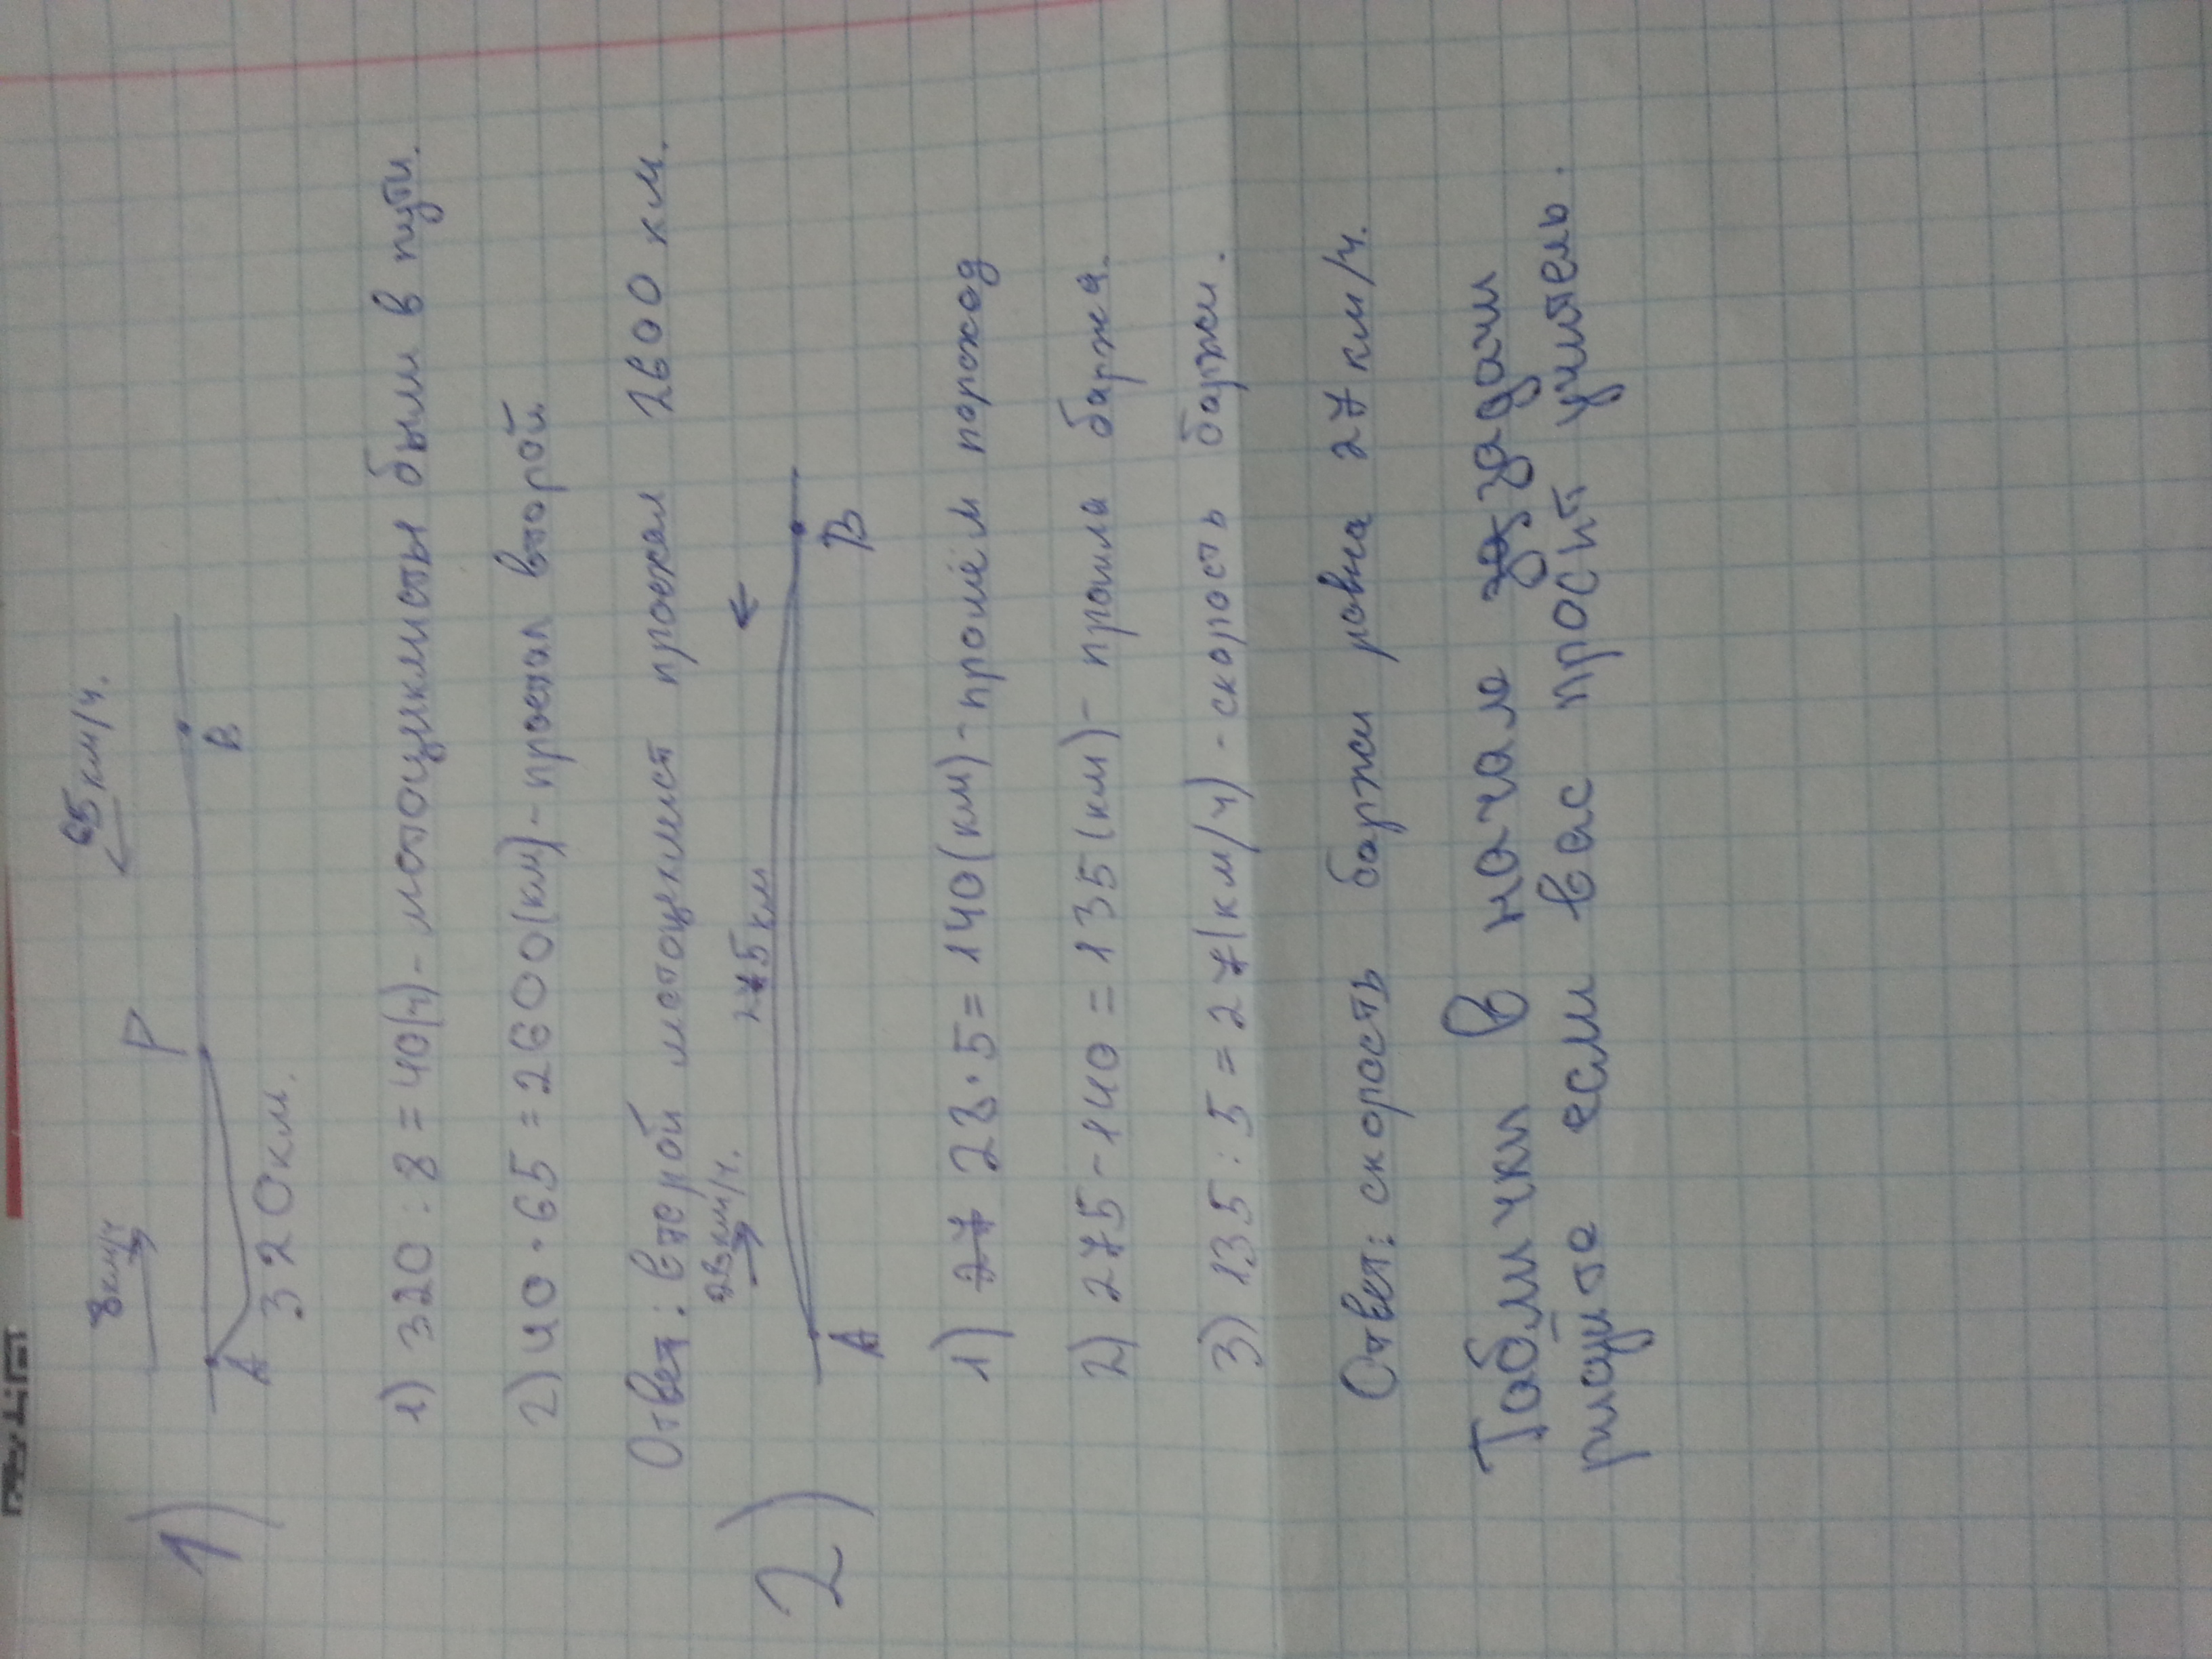 1)
8 км/ч 65 км/ч.
P
A B
320 км.
1) 320 : 8 = 40(ч) - мотоциклисты были в пути.
2) 40 · 65 = 2600(км) - проехал второй
Ответ: второй мотоциклист проехал 2600 км.
2)
28 км/ч. 275 км
A B
1) 27 28 · 5 = 140(км) - прошёл пароход
2) 275 - 140 = 135(км) - прошла баржа.
3) 135 : 5 = 27(км/ч) - скорость баржи.
Ответ: скорость баржи равна 27 км/ч.
Таблички в начале за задачи
пишите если вас просит учитель.